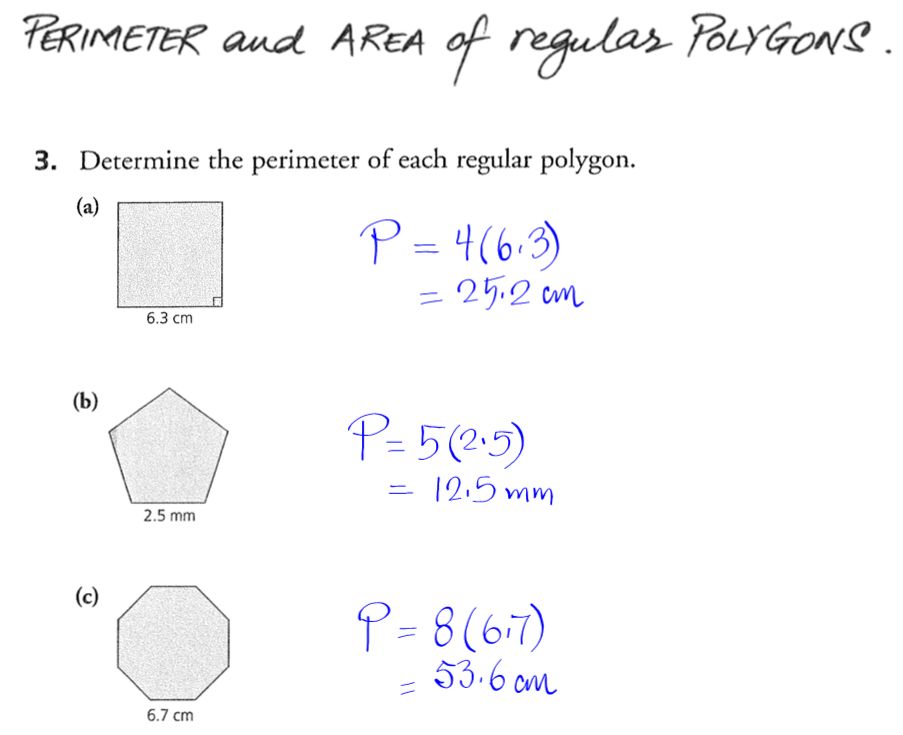 PERIMETER and AREA of regular POLYGONS.
3. Determine the perimeter of each regular polygon.
(a)
P = 4(6.3)
= 25.2 cm
6.3 cm
(b)
P = 5(2.5)
= 12.5 mm
2.5 mm
(c)
P = 8(6.7)
= 53.6 cm
6.7 cm